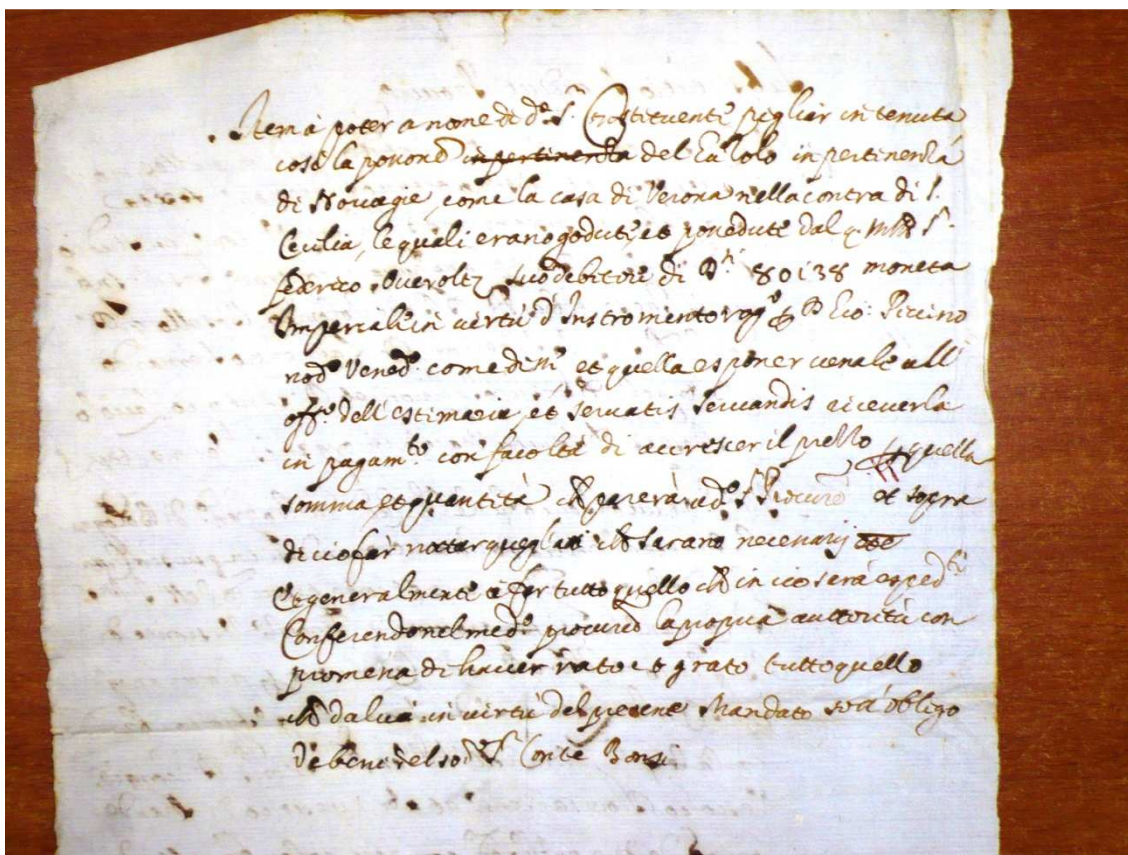 Item à poter a nome di d.º S.r Constituente pigliar in tenuta
cosi la possone in pertinenza del in pertinenza
di Novagie, come la casa di Verona nella contra di S.
Cecilia, le quali erano godute, et possedute dal q.
suo debitore di 80138 moneta
Imperiale in virtù d'Instromento rog.º
nod.º Vened.º come di m.º et quella esponer venale all
off.º dell'estimaria, et servatis servandis riceverla
in pagam.to con facoltà di accrescer il prezzo quella
somma, et quantità ch parerà ad.º S.r Procur.e et sopra
di cio far nottar quegl'atti ch sarano necessarij
Et generalmente à far tutto quello ch in cio serà exped.te
Conferendo nel med.º procur.e la propria auttorità con
promessa di haver rato et grato tutto quello
ch da lui in virtù del presente Mandato sotto obligo
De beni del sod.º S.r Conte